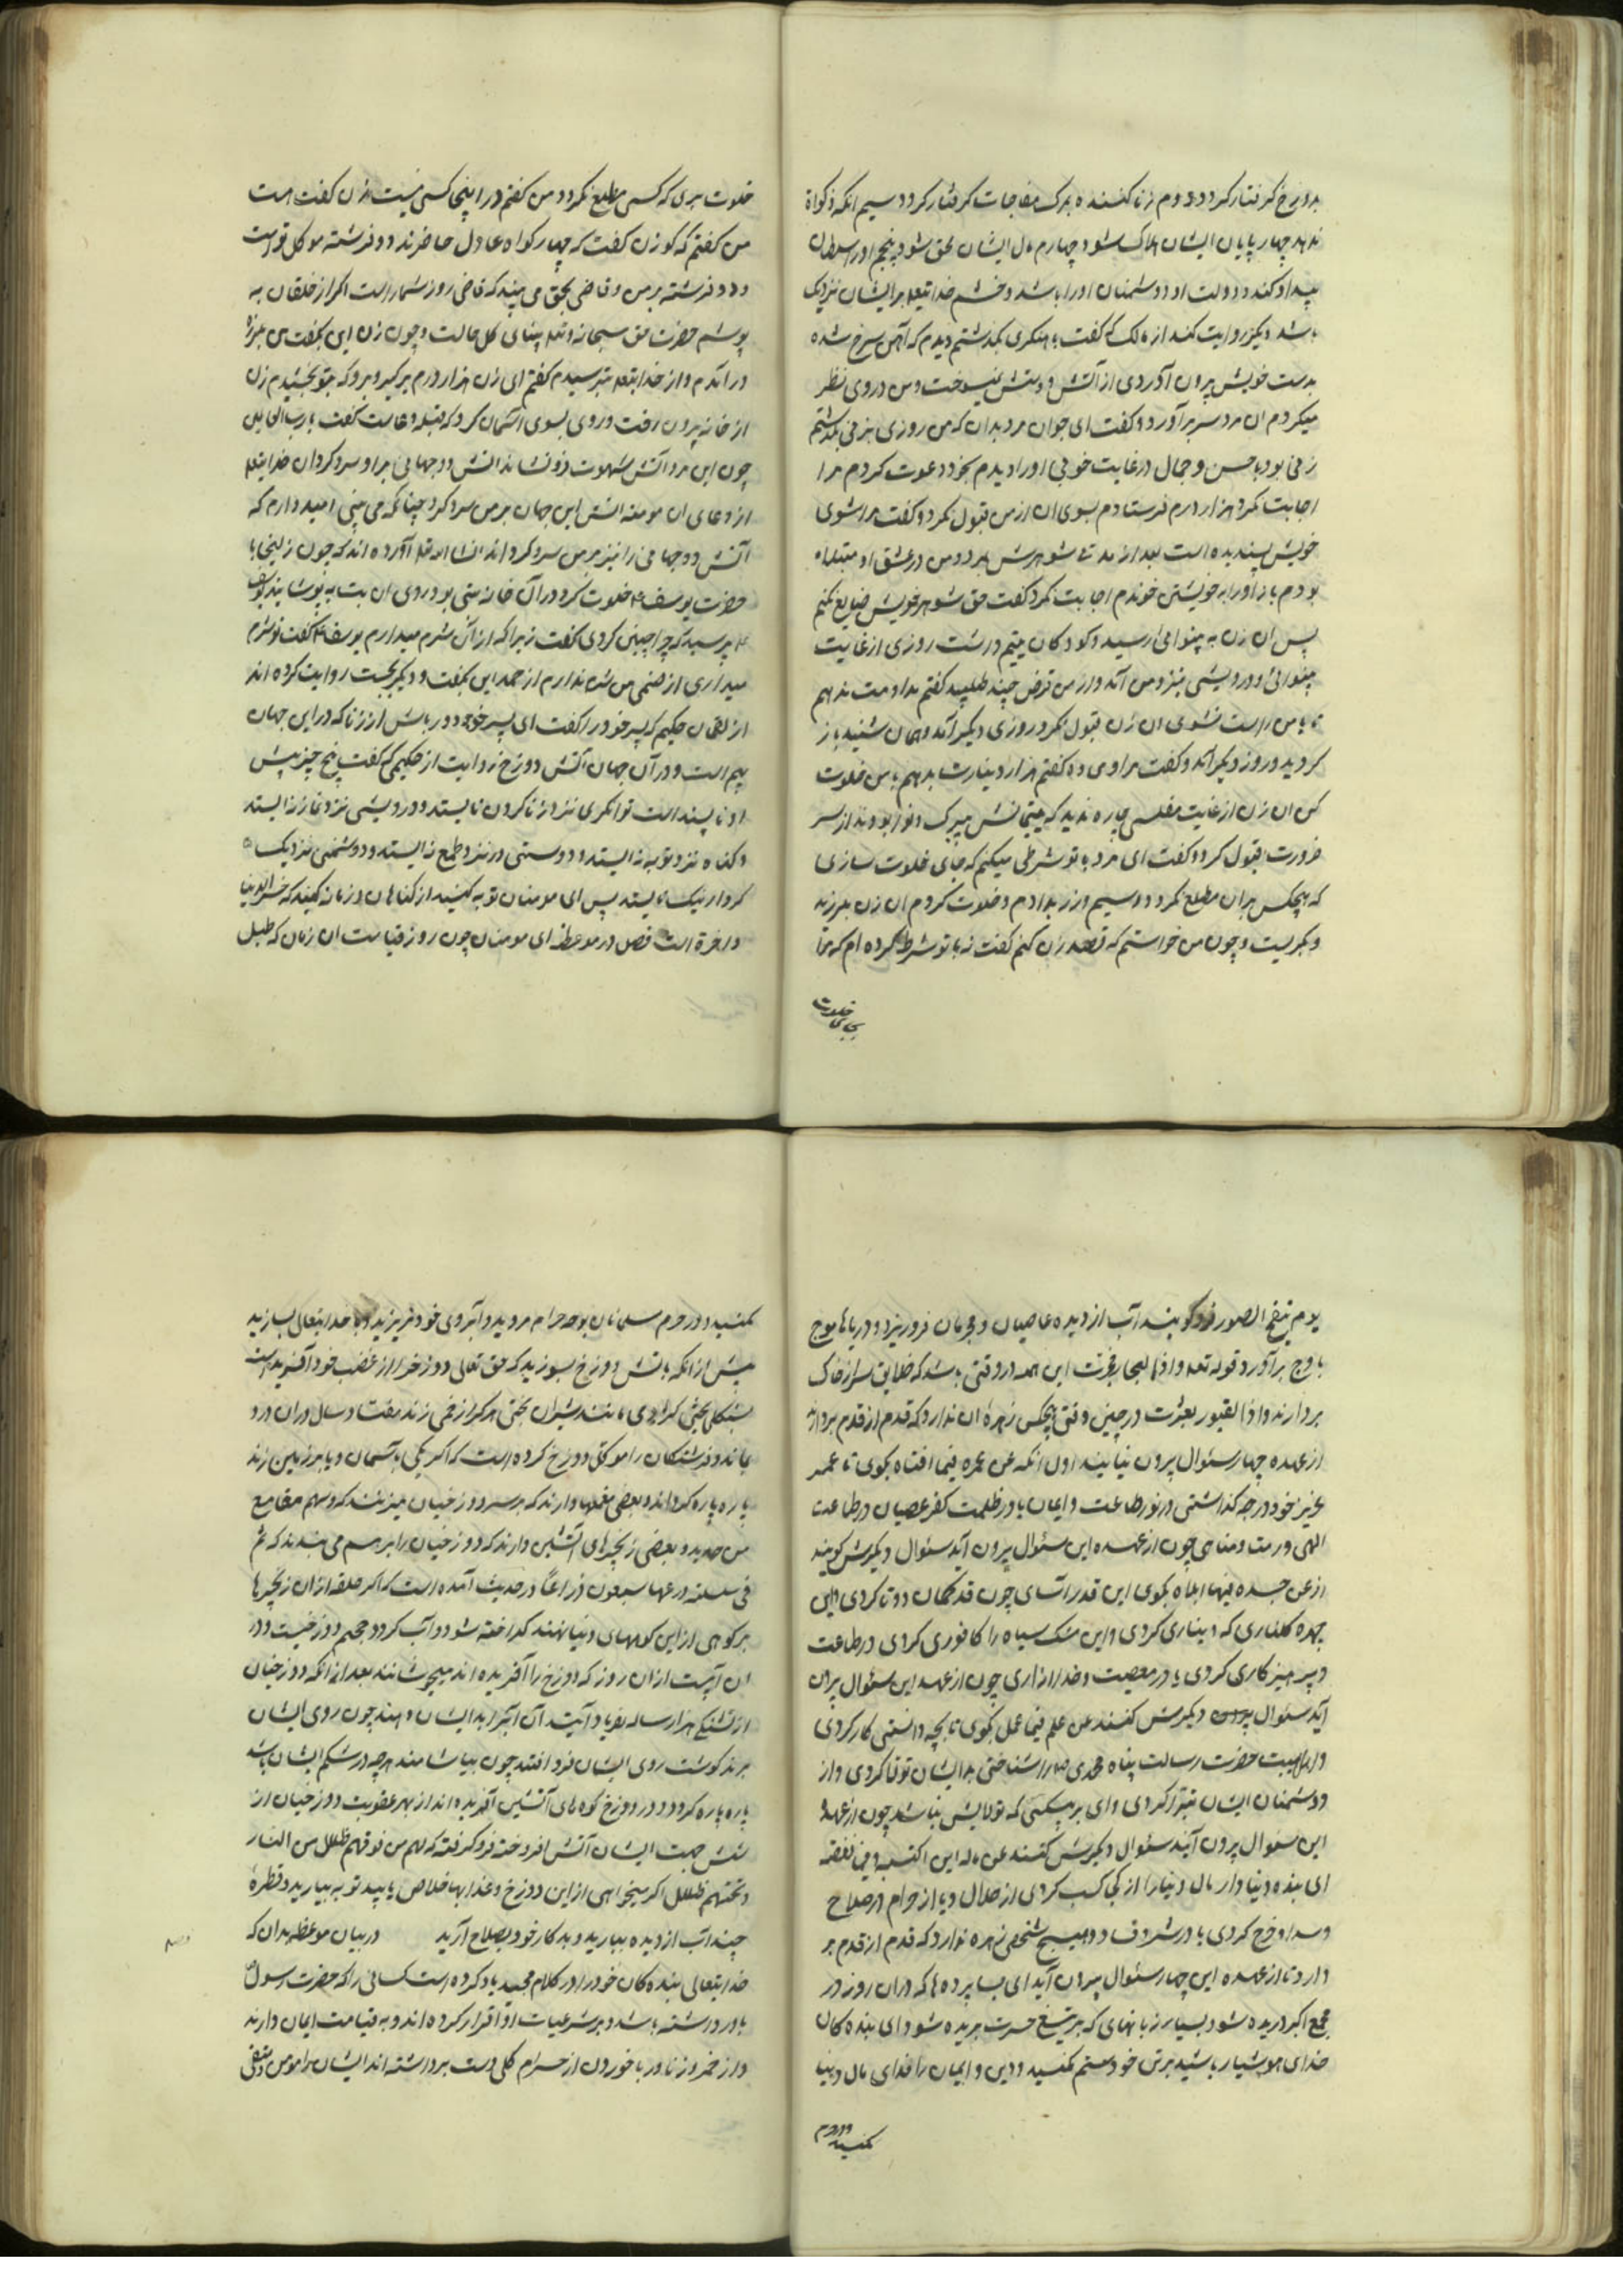 بدوزخ گرفتار کردد دوم زنا کننده بمرک مفاجات گرفتار کردد سیم انکه زکواة
ندهد چهارپایان ایشان هلاک شود چهارم مال ایشان بحق شود پنجم اورا سلطان
بیداد کند و دولت او دوشمنان اورا باشد و خشم خدایتعلی برایشان نزدیک
باشد دیکر روایت کنند از مالک که گفت باهنکری بگذشتم دیدم که آهن سرخ شده
بدست خویش بیرون آوردی از آتش و دستش نمیسوخت و من در وی نظر
میکردم ان مرد سر برآورد و گفت ای جوان مرد بدان که من روزی بزنی بگذشتم
زنی بود با حسن و جمال در غایت خوبی اورا دیدم بخود دعوت کردم مرا
اجابت نکرد هزار درم فرستادم بسوی ان از من قبول نکرد و گفت مرا شوی
خویش پسندیده است بعد از مدتی شوهرش بمرد و من در عشق او مبتلا
بودم باز اورا به خویشتن خوندم اجابت نکرد گفت حق شوهر خویش ضایع نکنم
پس ان زن به بینوائی رسید و کودکان یتیم داشت روزی از غایت
بینوائی و درویشی بنزد من آمد و از من قرض چند طلبید گفتم مدامت ندهم
تا با من راست نشوی ان زن قبول نکرد روزی دیکر آمد و همان شنید باز
کردید و روز دیکر آمد و گفت مرا وی ده گفتم هزار دینار شما بدهم با من خلوت
کن ان زن از غایت مفلسی چاره ندید که یتیمانش بی برک و نوا بودند از سر
ضرورت قبول کرد و گفت ای مرد با تو شرطی میکنم که جای خلوت سازی
که هیچکس بران مطلع نکردد و سیم و زر بدادم و خلوت کردم ان زن بلرزید
و بکریست و چون من خواستم که قصد زن کنم گفت نه با تو شرط کرده ام که مرا
بجای خلوت
خلوت بری که کسی مطلع نکردد من گفتم در اینجا کسی نیست ان زن گفت هست
من گفتم که کو زن گفت که چهار گواه عادل حاضرند دو فرشته موکل توست
و دو فرشته بر من و قاضی بحق می بیند که قاضی روز شمار است اکر از خلقان به
پوشم حضرت حق سبحانه و تعلی بینای کل حالت و چون زن این بگفت من بلرزه
در آمدم و از خدایتعلی بترسیدم گفتم ای زن هزار درم برگیر و برو که بتو بخشیدم زن
از خانه بیرون رفت و روی بسوی آسمان کرد که قبله دعاست گفت یا رب العالمین
چون این مرد آتش شهوت فرو نشاند آتش دو جهانی بر او سرد کردان خدایتعلی
از دعای ان مومنه آتش این جهان بر من سرد کرد چنانکه می بینی امیدوارم که
آتش دو جهانی را نیز بر من سرد کرداند انشا الله تعلی آورده اند که چون زلیخا با
حضرت یوسف ع خلوت کرد در آن خانه بتی بود روی ان بت به پوشانید یوسف
ع پرسید که چرا چنین کردی گفت زیرا که از ان شرم میدارم یوسف ع گفت تو شرم
میداری از صنمی من شرم ندارم از صمد این بگفت و دیکر بجست روایت کرده اند
از لقمان حکیم که پسر خود را گفت ای پسر خود دور باش از زنا که در این جهان
بیم است و در آن جهان آتش دوزخ روایت از حکیمی که گفت پنج چیز پیش
او ناپسند است توانکری نزد زنا کردن نایستد و درویشی نزد نماز نه ایستد
و گناه نزد توبه نه ایستد و دوستی در نزد طمع نه ایستد و دوشمنی نزدیک
کردار نیک نایستد پس ای مومنان توبه کنید از کناهان و زنا نه کنید که خسر الدنیا
والاخرة است فصل در موعظه ای مومنان چون روز قیامت ان زمان که طبل
یوم ینفخ الصور فرو کوبند آب از دیده عاصیان و مجرمان فرو ریزد و دریاها موج
با وج برآورد قوله تعلی و اذا البحار فجرت این همه در وقتی باشد که خلایق سر از خاک
بردارند و اذا القبور بعثرت در چنین وقتی هیچکس زهره ان ندارد که قدم از قدم بردارد
از عهده چهار سئوال بیرون نیایند اول انکه عن عمره فیما افناه بکوی تا عمر
عزیز خود در چه گذاشتی در نور طاعت و ایمان یا در ظلمت کفر عصیان در طاعت
الهی و رمت و مناهی چون از عهده این سئوال بیرون آید سئوال دیکرش کویند
از عن جسده فیها ابلاه بکوی این قدر آسای چون قد کمان دوتا کردی این
چهره گلناری که دیناری کردی و این مشک سیاه را کافوری کردی در طاعت
و پرهیز کاری کردی یا در معصیت و خدا ازاری چون از عهد این سئوال بیرون
آید سئوال دیکرش کنند عن علم فیما عمل بکوی تا بچه دانستی کار کردی
و اهل بیت حضرت رسالت پناه محمدی را شناختی بدایشان تولا کردی و از
دوشمنان ایشان تبرا کردی وای بر بیکسی که تولایش نباشد چون از عهد
این سئوال بیرون آید سئوال دیکرش کنند عن ماله این اکتسبه و فی نفقه
ای بنده دنیا دار مال دنیا را از کی کسب کردی از حلال و یا از حرام در صلاح
و سداد خرج کردی یا در شر و فساد و هیچ شخصی زهره ندارد که قدم از قدم بر
دارد تا از عهده این چهار سئوال بیرون آید ای بسا پرده ها که در ان روز در
مجمع اکبر دریده شود بسیار زبانهای که بتیغ حسرت بریده شود ای بنده کان
خدای هوشیار باشید بر تن خود ستم نکنید و دین و ایمان را فدای مال دنیا
نکنید و در حرم
نکنید و در حرم مسلمانان بوجه حرام مروید و آبروی خود مریزید و با خدایتعالی بسازید
پیش از انکه باتش دوزخ بسوزید که حق تعالی دوزخ را از غضب خود آفریده است
بماند و فرشتکان را موکل دوزخ کرده است که اکر یکی باسمان و یا بر زمین زند
پاره پاره کرداند و بعضی مغلها دارند که بر سر دوزخیان میزنند که و لهم مقامع
من حدید و بعضی زنجیرهای آتشین دارند که دوزخیان را بر هم می بندند که ثم
فی سلسلة ذرعها سبعون ذراعا در حدیث آمده است که اکر حلقه از ان زنجیرها
بر کوهی از این کوههای دنیا نهند کداخته شود و آب کردد جحیم دوزخیست و در
ان آبیست از ان روز که دوزخ را آفریده اند میجوشانند بعد از انکه دوزخیان
از تشنگی هزار سال بفریاد آیند آن آب را بدایشان دهند چون روی ایشان
برند گوشت روی ایشان فرو افتد چون بیاشامند هر چه در شکم ایشان باشد
پاره پاره کردد و در دوزخ کوه های آتشین آفریده اند از بهر عقوبت دوزخیان از
شش جهت ایشان آتش افروخته فرو کرفته که لهم من فوقهم ظلل من النار
و تحتهم ظلل اکر میخواهی از این دوزخ و عذابها خلاص یابید توبه بیارید و قطره
چند آب از دیده ببارید و بد کار خود بصلاح آرید در بیان موعظه بدان که
خدایتعالی بنده کان خود را در کلام مجید یاد کرده است کسانی را که حضرت رسول
باور داشته باشد و بر شرعیات او اقرار کرده اند و به قیامت ایمان دارند
و از خمر و زنا و ربا خوردن از حرام کلی دست برداشته اند ایشان را مومن و متقی